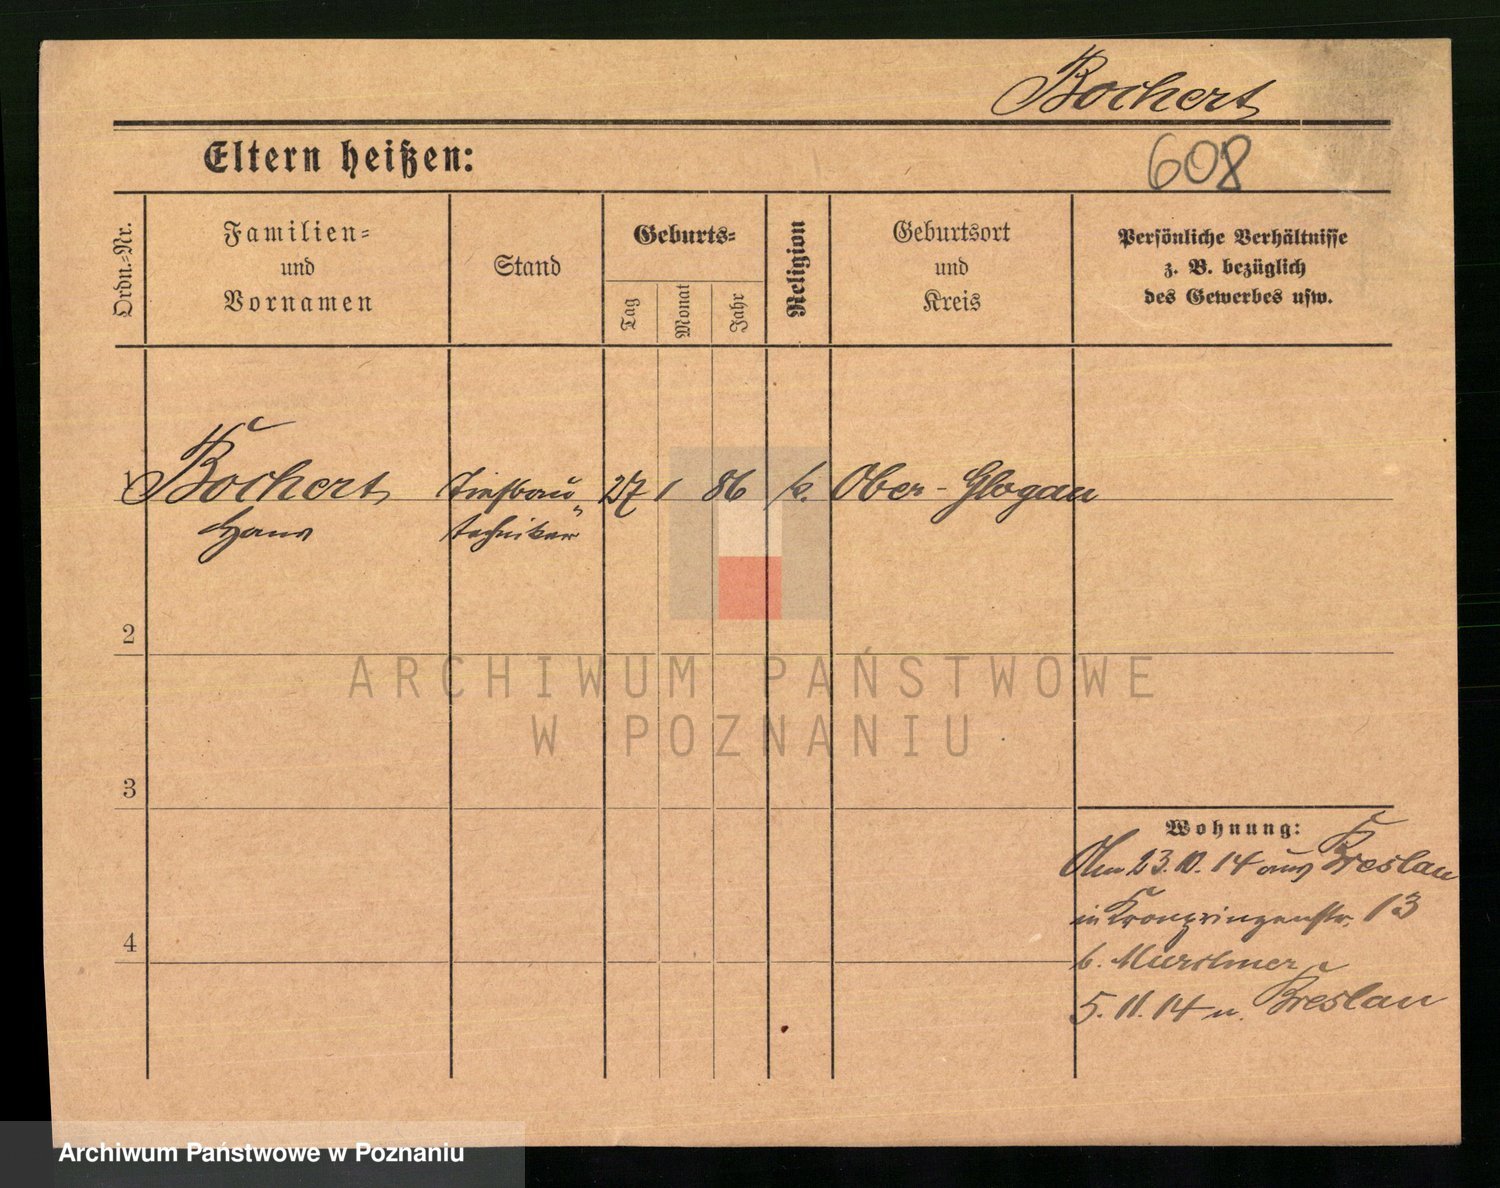 Bochert
Eltern heißen:
608
Ordn.-Nr.
Familien-
und
Vornamen
Stand
Geburts-
Tag
Monat
Jahr
Religion
Geburtsort
und
Kreis
Persönliche Verhältnisse
z. B. bezüglich
des Gewerbes usw.
1 Bochert Tiefbau 27 1 86 k. Ober-Glogau
Hans techniker
2
ARCHIWUM PAŃSTWOWE
W POZNANIU
3
Wohnung:
Am 23.10.14 aus Breslau
in Kronprinzenstr. 13
b.
4
5.11.14 n. Breslau
Archiwum Państwowe w Poznaniu